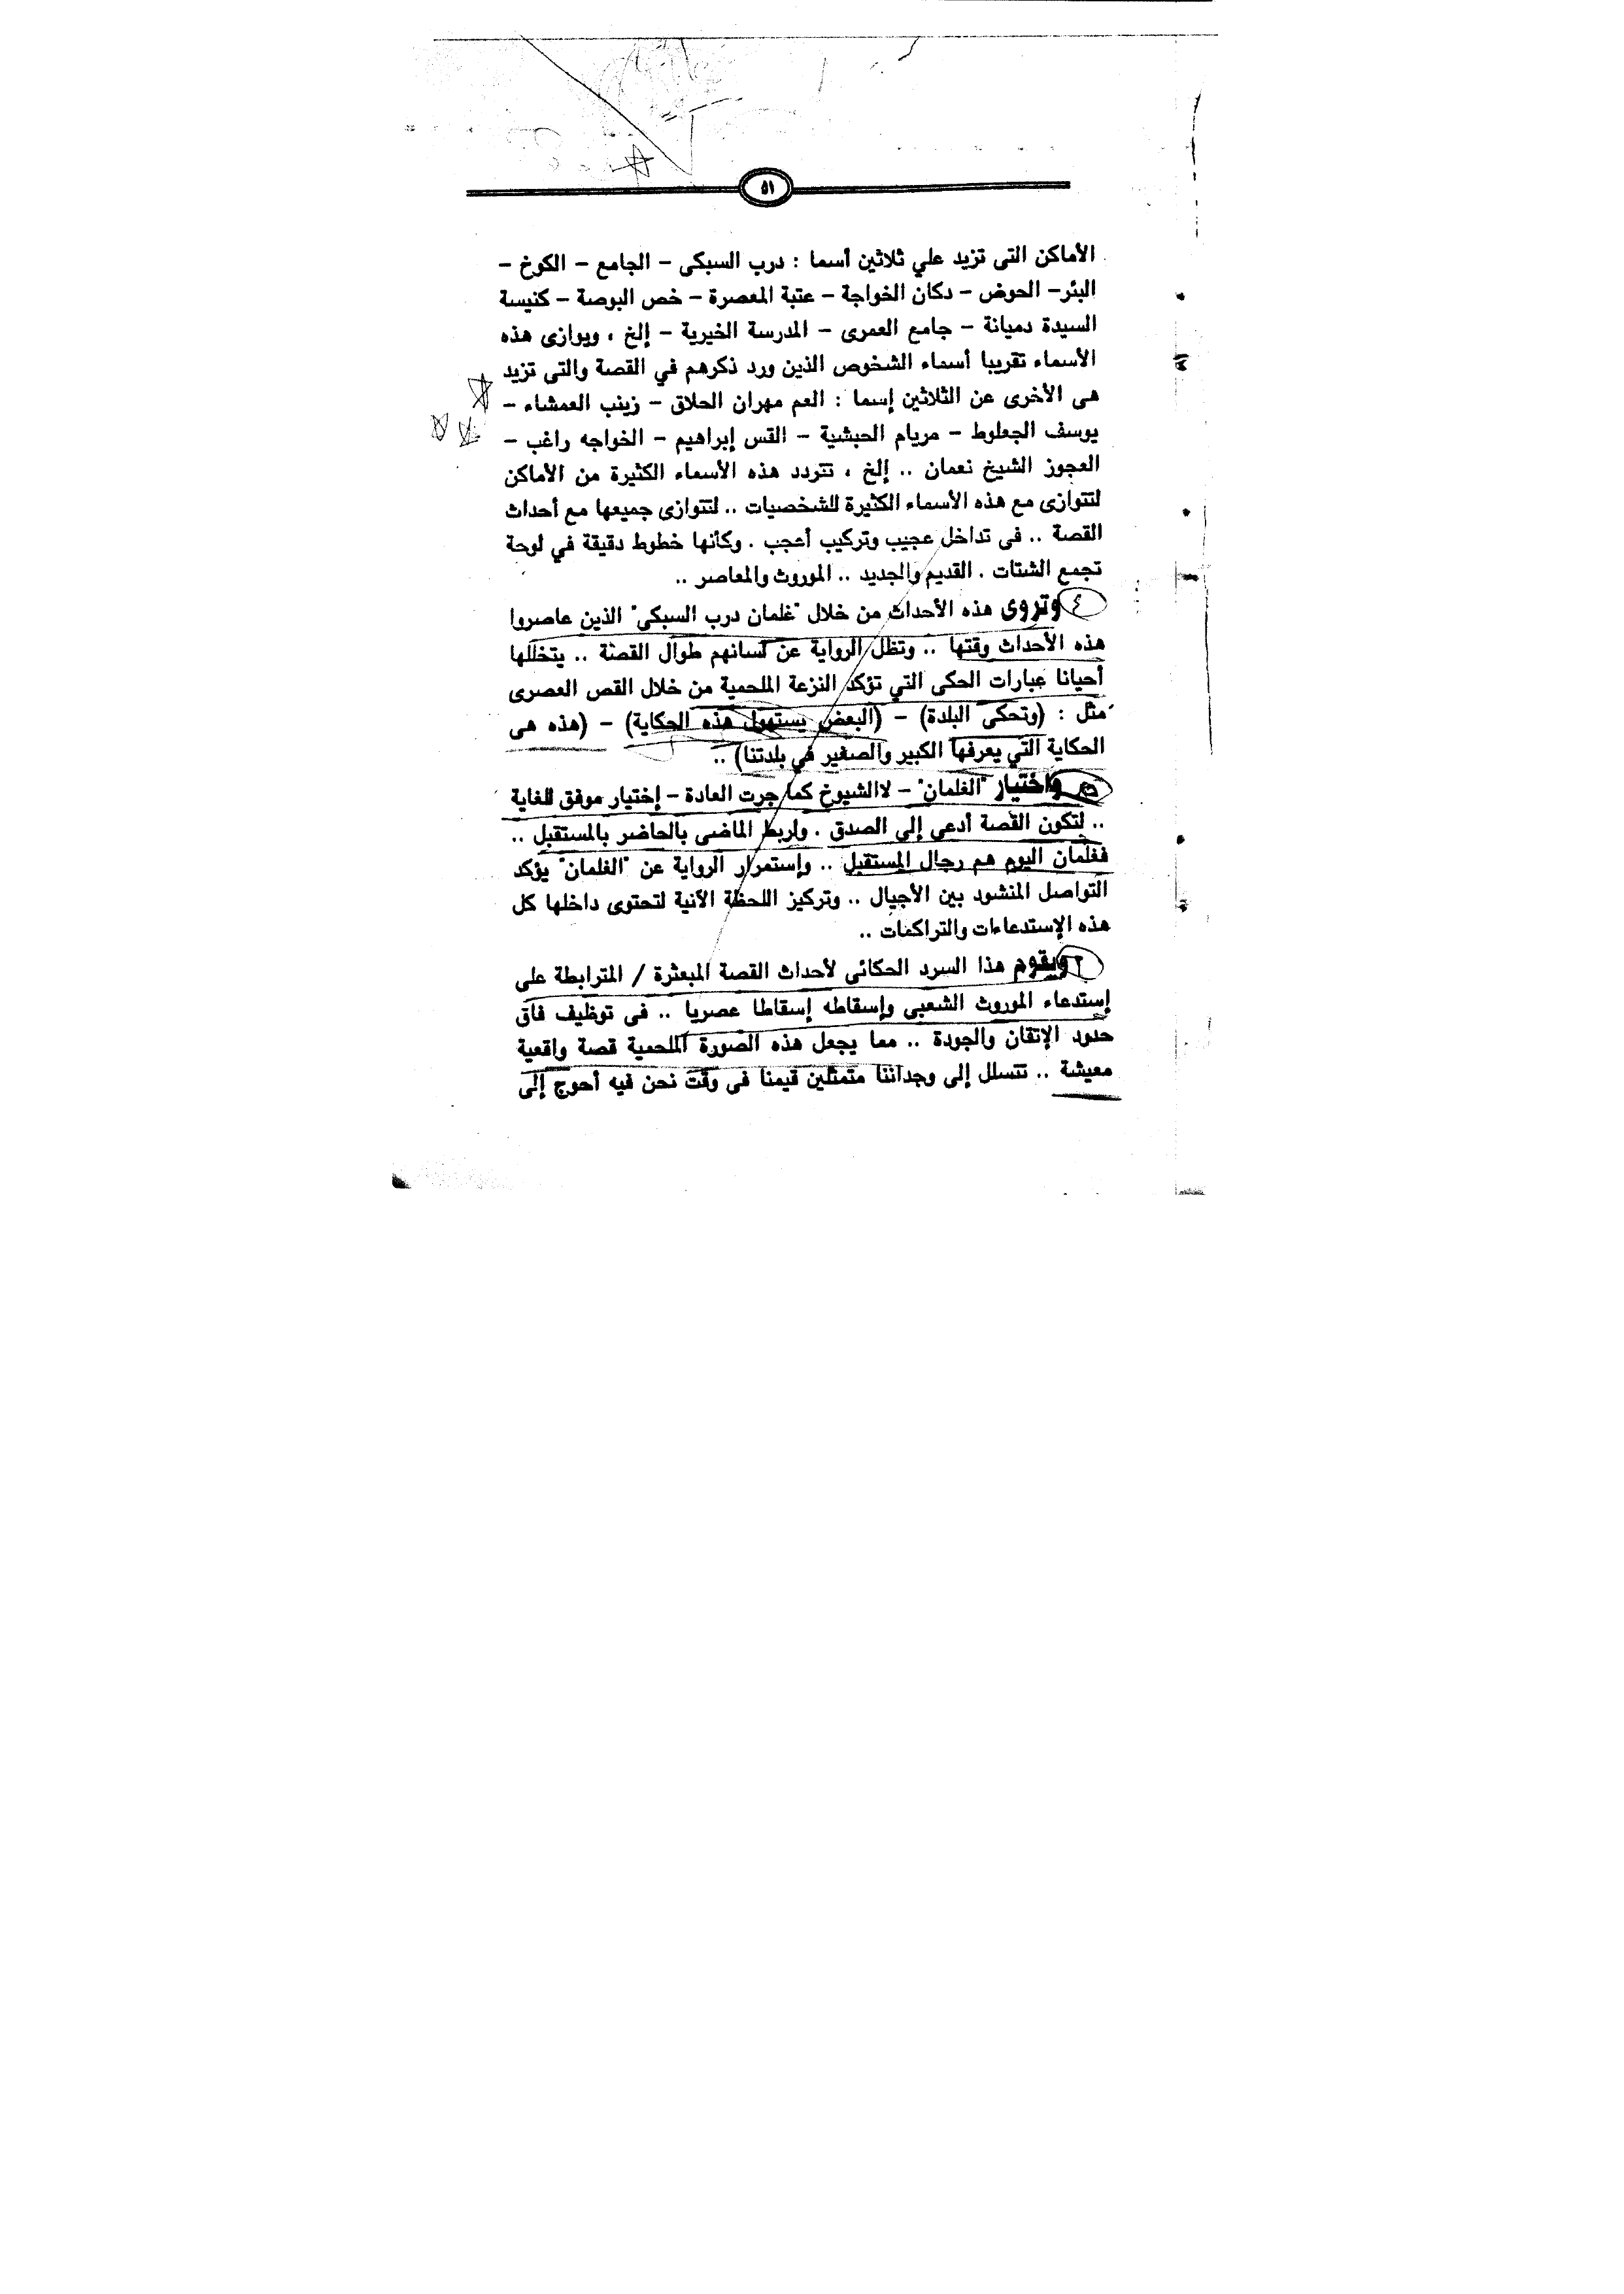 ٥١
الأماكن التى تزيد علي ثلاثين أسما : درب السبكى – الجامع – الكوخ –
البئر– الحوض – دكان الخواجة – عتبة المعصرة – خص البوصة – كنيسة
السيدة دميانة – جامع العمرى – المدرسة الخيرية – إلخ ، ويوازى هذه
الأسماء تقريبا أسماء الشخوص الذين ورد ذكرهم في القصة والتى تزيد
هى الأخرى عن الثلاثين إسما : العم مهران الحلاق – زينب العمشاء –
يوسف الجعلوط – مريام الحبشية – القس إبراهيم – الخواجه راغب –
العجوز الشيخ نعمان .. إلخ ، تتردد هذه الأسماء الكثيرة من الأماكن
لتتوازى مع هذه الأسماء الكثيرة للشخصيات .. لتتوازى جميعها مع أحداث
القصة .. فى تداخل عجيب وتركيب أعجب . وكأنها خطوط دقيقة في لوحة
تجمع الشتات . القديم والجديد .. الموروث والمعاصر ..
٤ وتروى هذه الأحداث من خلال "غلمان درب السبكى" الذين عاصروا
هذه الأحداث وقتها .. وتظل الرواية عن لسانهم طوال القصة .. يتخللها
أحيانا عبارات الحكى التي تؤكد النزعة الملحمية من خلال القص العصرى
مثل : (وتحكى البلدة) – (البعض يستهول هذه الحكاية) – (هذه هى
الحكاية التي يعرفها الكبير والصغير في بلدتنا) ..
٥ واختيار "الغلمان" – لاالشيوخ كما جرت العادة – إختيار موفق للغاية
.. لتكون القصة أدعى إلى الصدق . واربط الماضى بالحاضر بالمستقبل ..
فغلمان اليوم هم رجال المستقبل .. وإستمرار الرواية عن "الغلمان" يؤكد
التواصل المنشود بين الأجيال .. وتركيز اللحظة الآنية لتحتوى داخلها كل
هذه الإستدعاءات والتراكمات ..
ويقوم هذا السرد الحكائى لأحداث القصة المبعثرة / المترابطة على
إستدعاء الموروث الشعبى وإسقاطه إسقاطا عصريا .. فى توظيف فاق
حدود الإتقان والجودة .. مما يجعل هذه الصورة الملحمية قصة واقعية
معيشة .. تتسلل إلى وجداننا متمثلين قيمنا فى وقت نحن فيه أحوج إلى